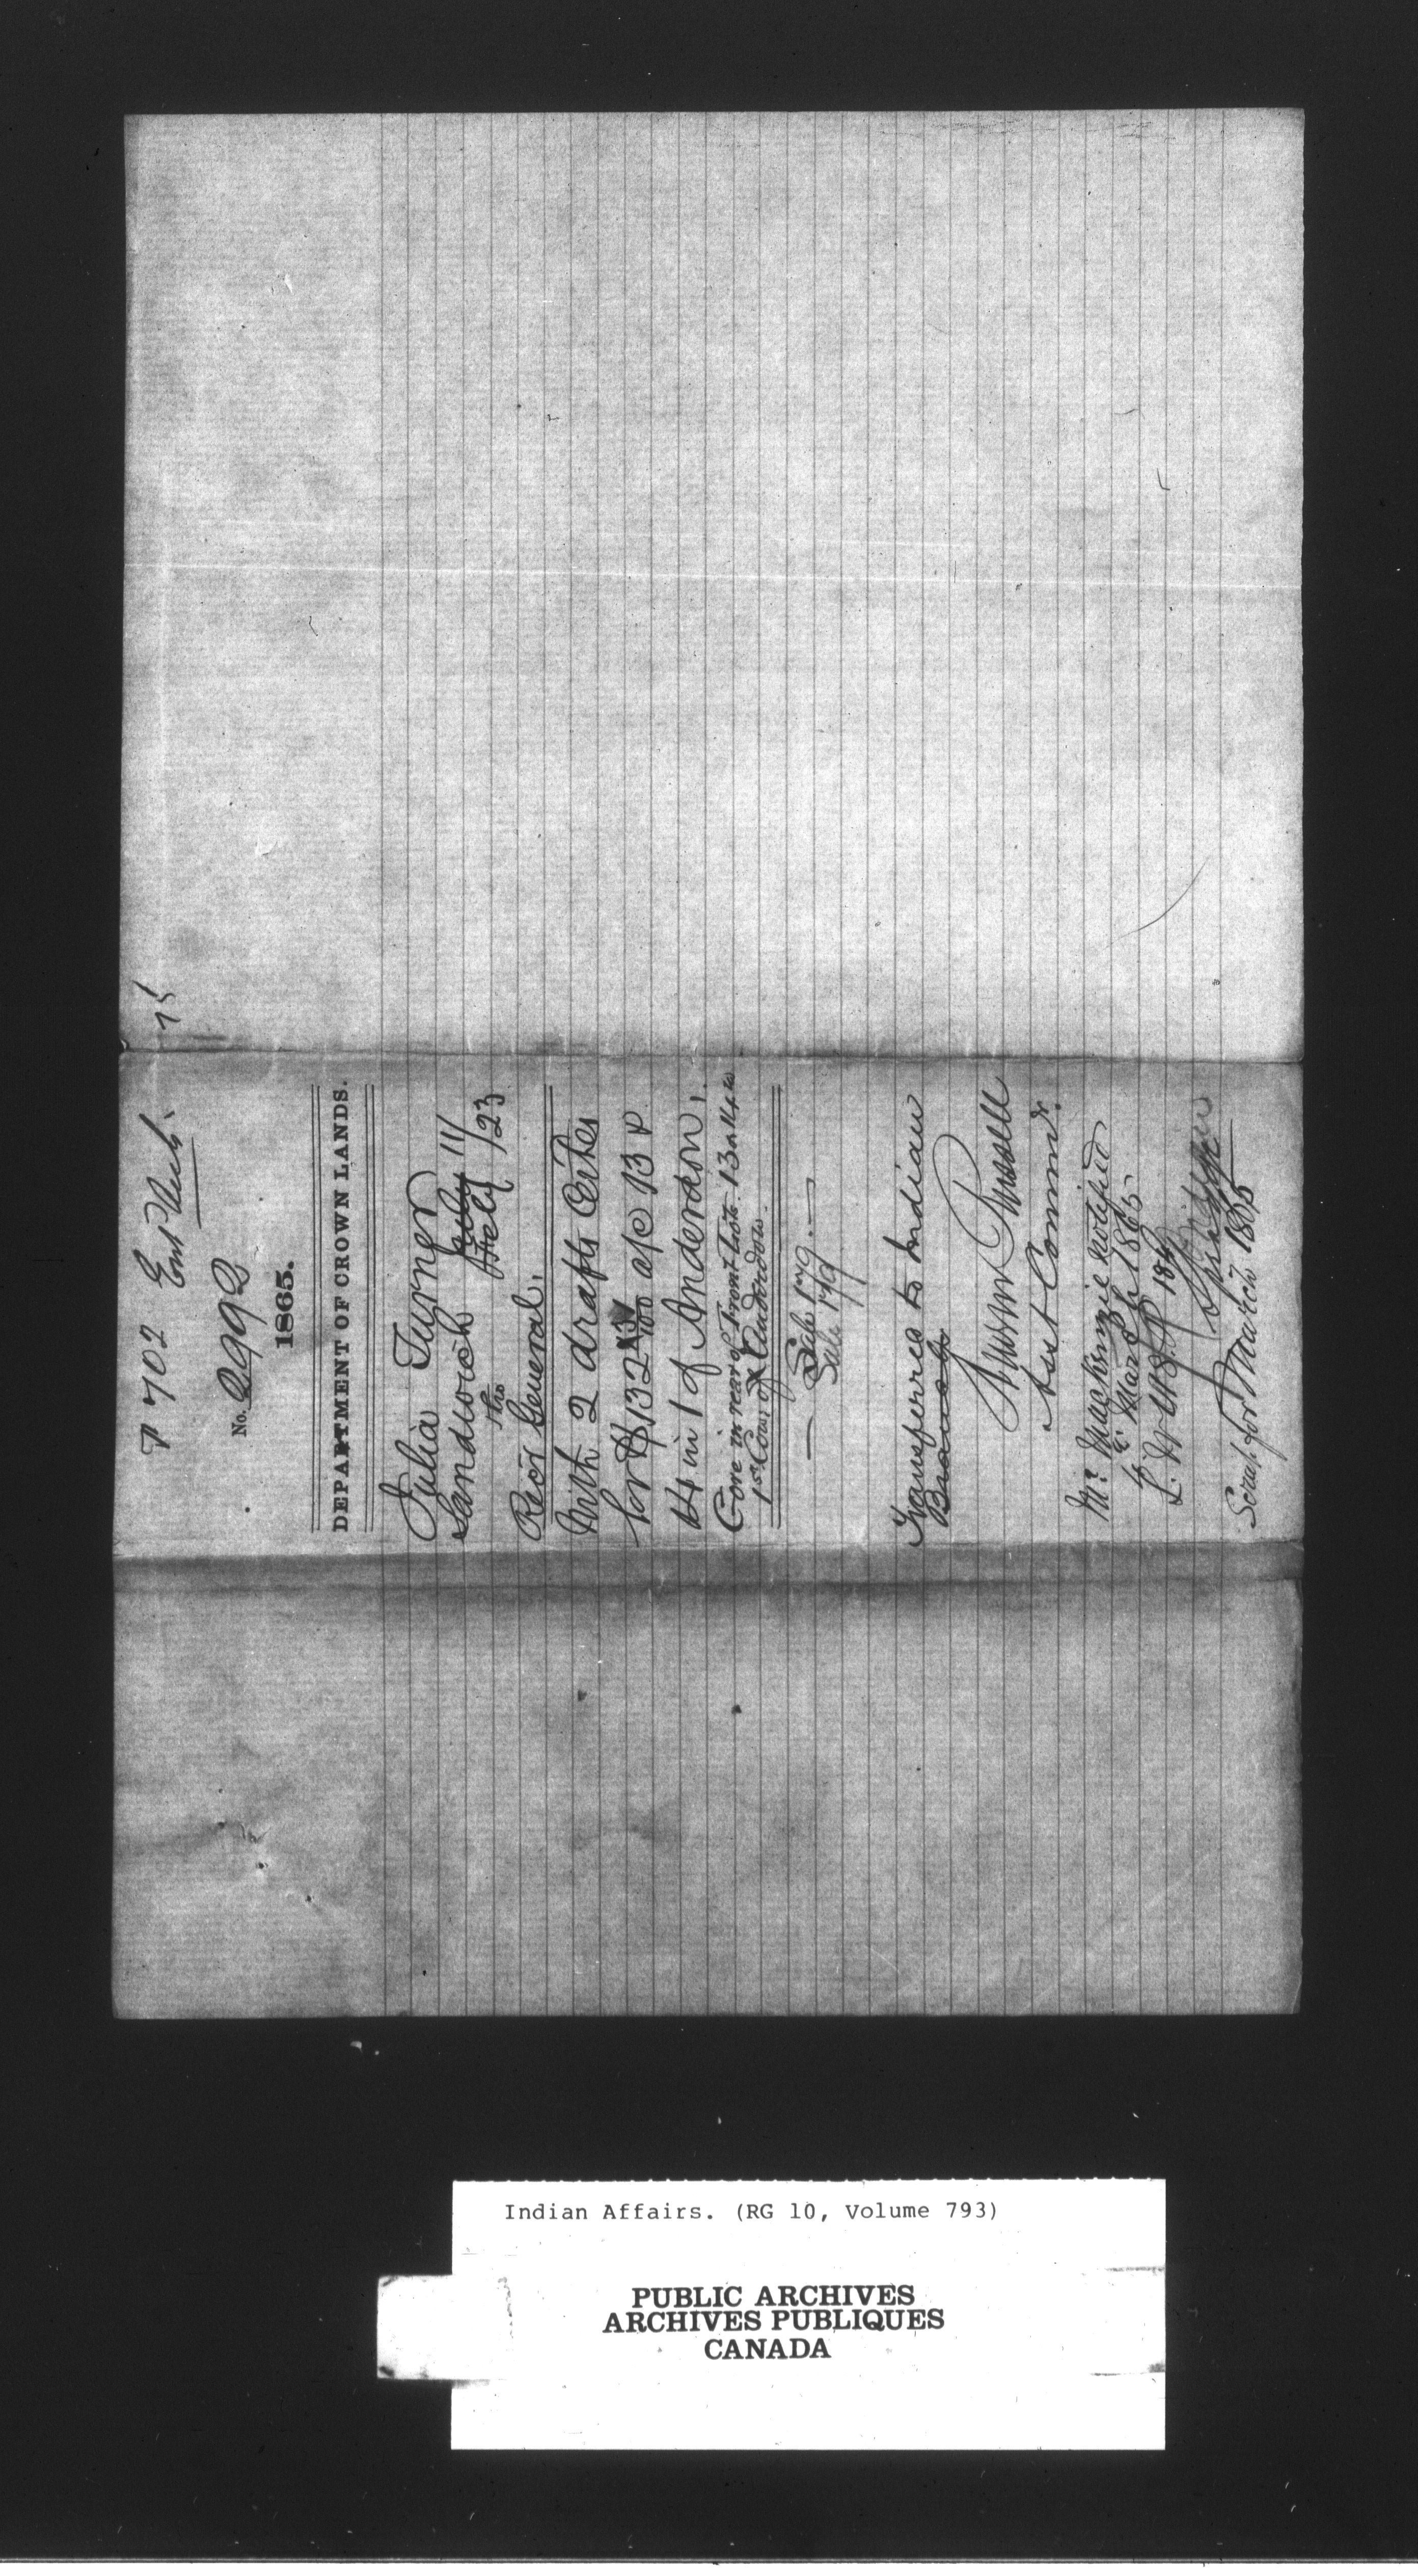 702
75
No. 2992
1865.
DEPARTMENT OF CROWN LANDS.
Julia Turner
Sandwich July 11/
Feby /23
Thro
Recr General.
With 2 drafts
for $132 a/c 13 &
14 in 1 of Anderdon.
Gore in rear of Front Lots 13 & 14 in
1st Con: of Anderdon.
— Sale 179. —
Sale 179
Transferred to Indian
Branch
Andrew Russell
Asst Commr.
Mr. Mackenzie notified
March 1865
L.
March 1865
Indian Affairs. (RG 10, Volume 793)
PUBLIC ARCHIVES
ARCHIVES PUBLIQUES
CANADA